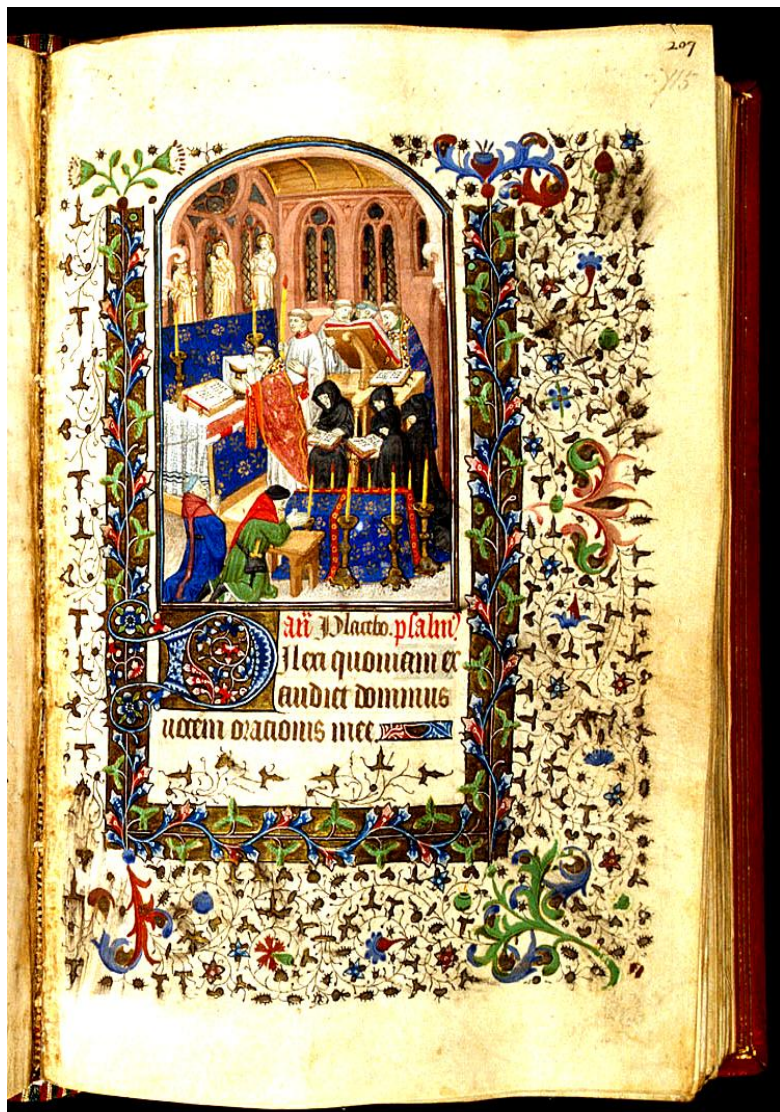 207
115
añ Placebo. psalm᷒
Dilexi quoniam ex
audiet dominus
uocem orationis mee